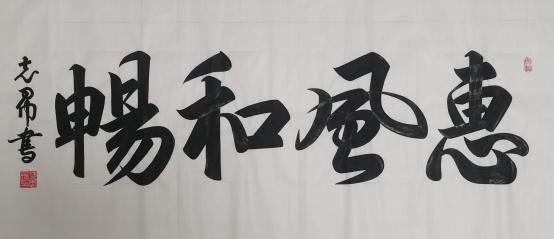 惠風和暢
志昂書